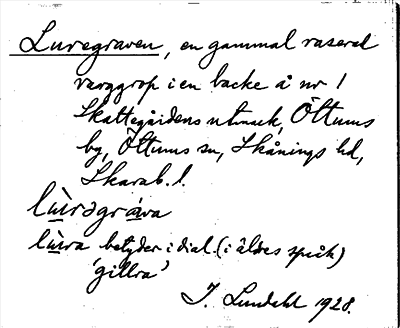 Luregraven, en gammal raserad
varggrop i en backe å nr 1
Skattegårdens utmark, Öttums
by, Öttums sn, Skånings hd,
Skarab. l.
lùrəgráva
lùra betyder i dial. (i äldes språk)
'gillra'
J. Lundahl 1928.